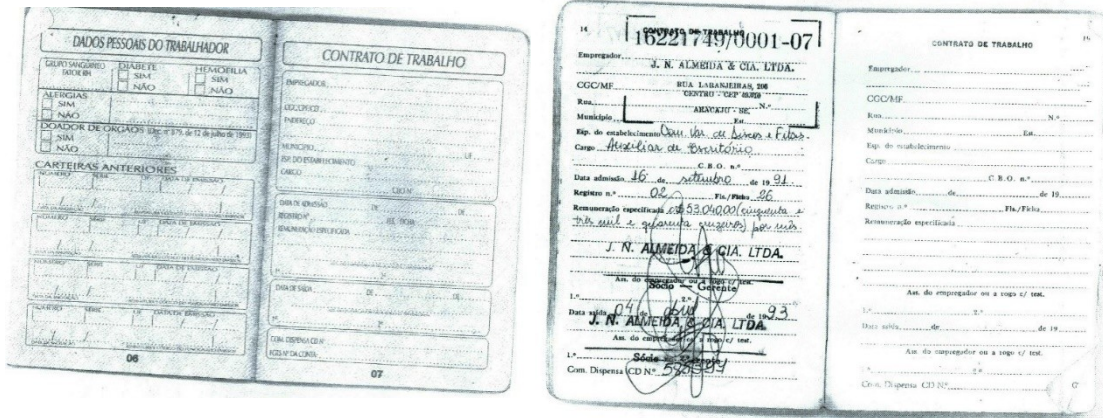 DADOS PESSOAIS DO TRABALHADOR
GRUPO SANGUÍNEO FATOR RH
DIABETE
SIM
NÃO
HEMOFILIA
SIM
NÃO
ALERGIAS
SIM
NÃO
DOADOR DE ORGÃOS (Dec. nº 879, de 12 de julho de 1993)
SIM
NÃO
CARTEIRAS ANTERIORES
NÚMERO SÉRIE UF DATA DE EMISSÃO
NÚMERO SÉRIE UF DATA DE EMISSÃO
NÚMERO SÉRIE UF DATA DE EMISSÃO
NÚMERO SÉRIE UF DATA DE EMISSÃO
06
CONTRATO DE TRABALHO
EMPREGADOR
CGC/CPF/CEI
ENDEREÇO
MUNICÍPIO UF
ESP. DO ESTABELECIMENTO
CARGO
CBO Nº
DATA DE ADMISSÃO DE DE
REGISTRO Nº FLS. / FICHA
REMUNERAÇÃO ESPECIFICADA
1º 2º
DATA DE SAÍDA DE DE
1º 2º
COM. DISPENSA CD Nº
FGTS Nº DA CONTA
07
16
CONTRATO DE TRABALHO
16221749/0001-07
Empregador
J. N. ALMEIDA & CIA. LTDA.
CGC/MF
RUA LARANJEIRAS, 206
CENTRO - CEP
Rua N.º
ARACAJU - SE.
Município Est.
Esp. do estabelecimento Com. Var. de Discos e Fitas
Cargo Auxiliar de Escritório
C.B.O. n.º
Data admissão 16 de setembro de 19 91
Registro n.º 02 Fls./Ficha 26
Remuneração especificada Cr$ 53.040,00 (cinquenta e
três mil e quarenta cruzeiros) por mês
J. N. ALMEIDA & CIA. LTDA.
Ass. do empregador ou a rogo c/ test.
Sócio — Gerente
1.º 2.º
Data saída 04 de abril de 19 93
J. N. ALMEIDA & CIA. LTDA.
Ass. do empregador ou a rogo c/ test.
Sócio — Gerente
1.º
Com. Dispensa CD N.º
CONTRATO DE TRABALHO
Empregador
CGC/MF
Rua N.º
Município Est.
Esp. do estabelecimento
Cargo
C.B.O. n.º
Data admissão de de 19
Registro n.º Fls./Ficha
Remuneração especificada
Ass. do empregador ou a rogo c/ test.
1.º 2.º
Data saída de de 19
Ass. do empregador ou a rogo c/ test.
1.º 2.º
Com. Dispensa CD N.º